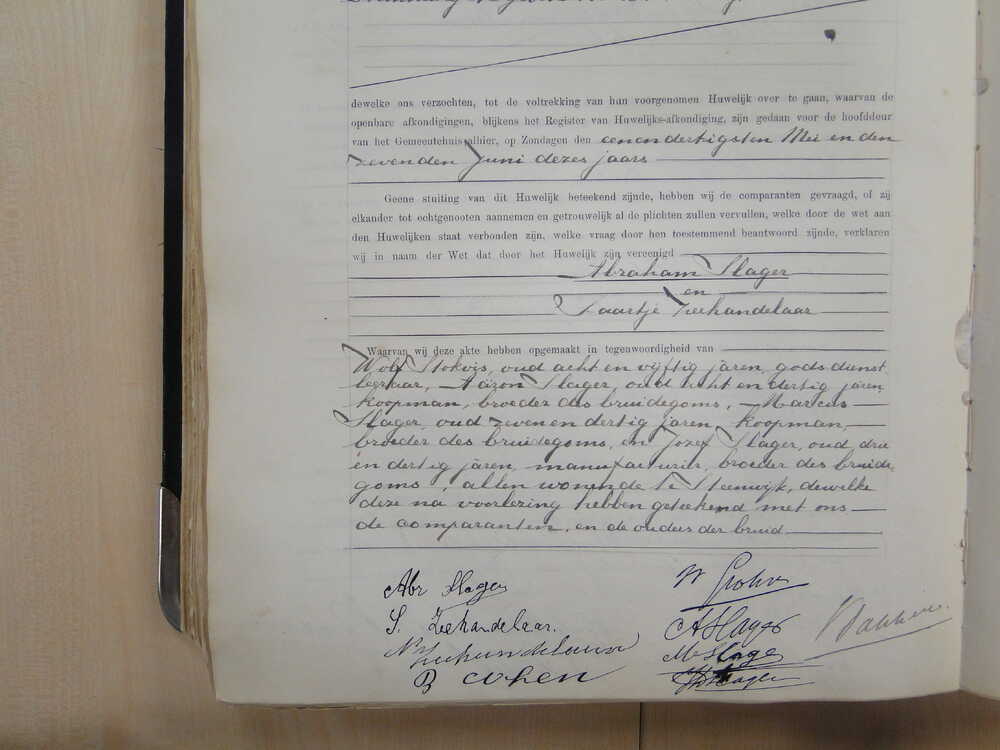 dewelke ons verzochten, tot de voltrekking van hun voorgenomen Huwelijk over te gaan, waarvan de
openbare afkondigingen, blijkens het Register van Huwelijks-afkondiging, zijn gedaan voor de hoofddeur
van het Gemeentehuis alhier, op Zondagen den eenendertigsten Mei en den
zevenden Juni dezes jaars
Geene stuiting van dit Huwelijk beteekend zijnde, hebben wij de comparanten gevraagd, of zij
elkander tot echtgenooten aannemen en getrouwelijk al de plichten zullen vervullen, welke door de wet aan
den Huwelijken staat verbonden zijn, welke vraag door hen toestemmend beantwoord zijnde, verklaren
wij in naam der Wet dat door het Huwelijk zijn vereenigd
Abraham Slager
en
Saartje Zeehandelaar
Waarvan wij deze akte hebben opgemaakt in tegenwoordigheid van
Wolf Stokvis, oud acht en vijftig jaren, godsdienst
leeraar, Aäron Slager, oud acht en dertig jaren
koopman, broeder des bruidegoms, Marcus
Slager, oud zeven en dertig jaren, koopman,
broeder des bruidegoms, en Jozef Slager, oud drie
en dertig jaren, manufacturier, broeder des bruide
goms, allen wonende te Steenwijk, dewelke
deze na voorlezing hebben geteekend met ons
de comparanten, en de ouders der bruid
Abr Slager
W Stokvis
S. Zeehandelaar.
A Slager
M Slager
B Cohen
Slager